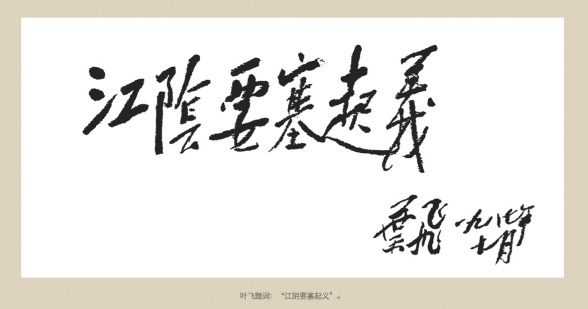 江陰要塞起義
葉飛 一九八七年
十月
叶飞题词：“江阴要塞起义”。